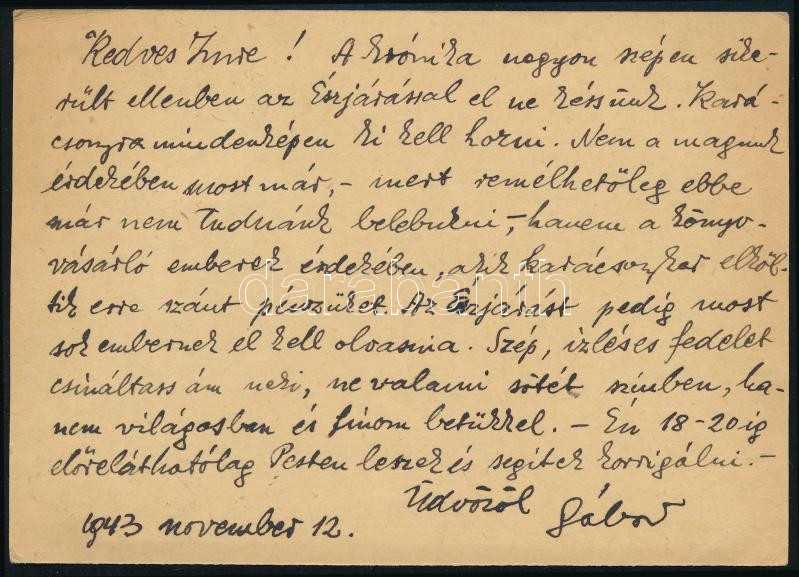 Kedves Imre! A krónika nagyon szépen sike-
rült ellenben az Észjárással el ne késsünk. Kará-
csonyra mindenképen ki kell hozni. Nem a magunk
érdekében most már, - mert remélhetőleg ebbe
már nem tudnánk belebukni -, hanem a könyv-
vásárló emberek érdekében, akik karácsonykor elköl-
tik erre szánt pénzüket. Az Észjárást pedig most
sok embernek el kell olvasnia. Szép, izléses fedelet
csináltass ám neki, ne valami sötét szinben, ha-
nem világosban és finom betükkel. - Én 18-20-ig
előreláthatólag Pesten leszek és segitek korrigálni. -
Üdvözöl Gábor
1943 november 12.
darabanth